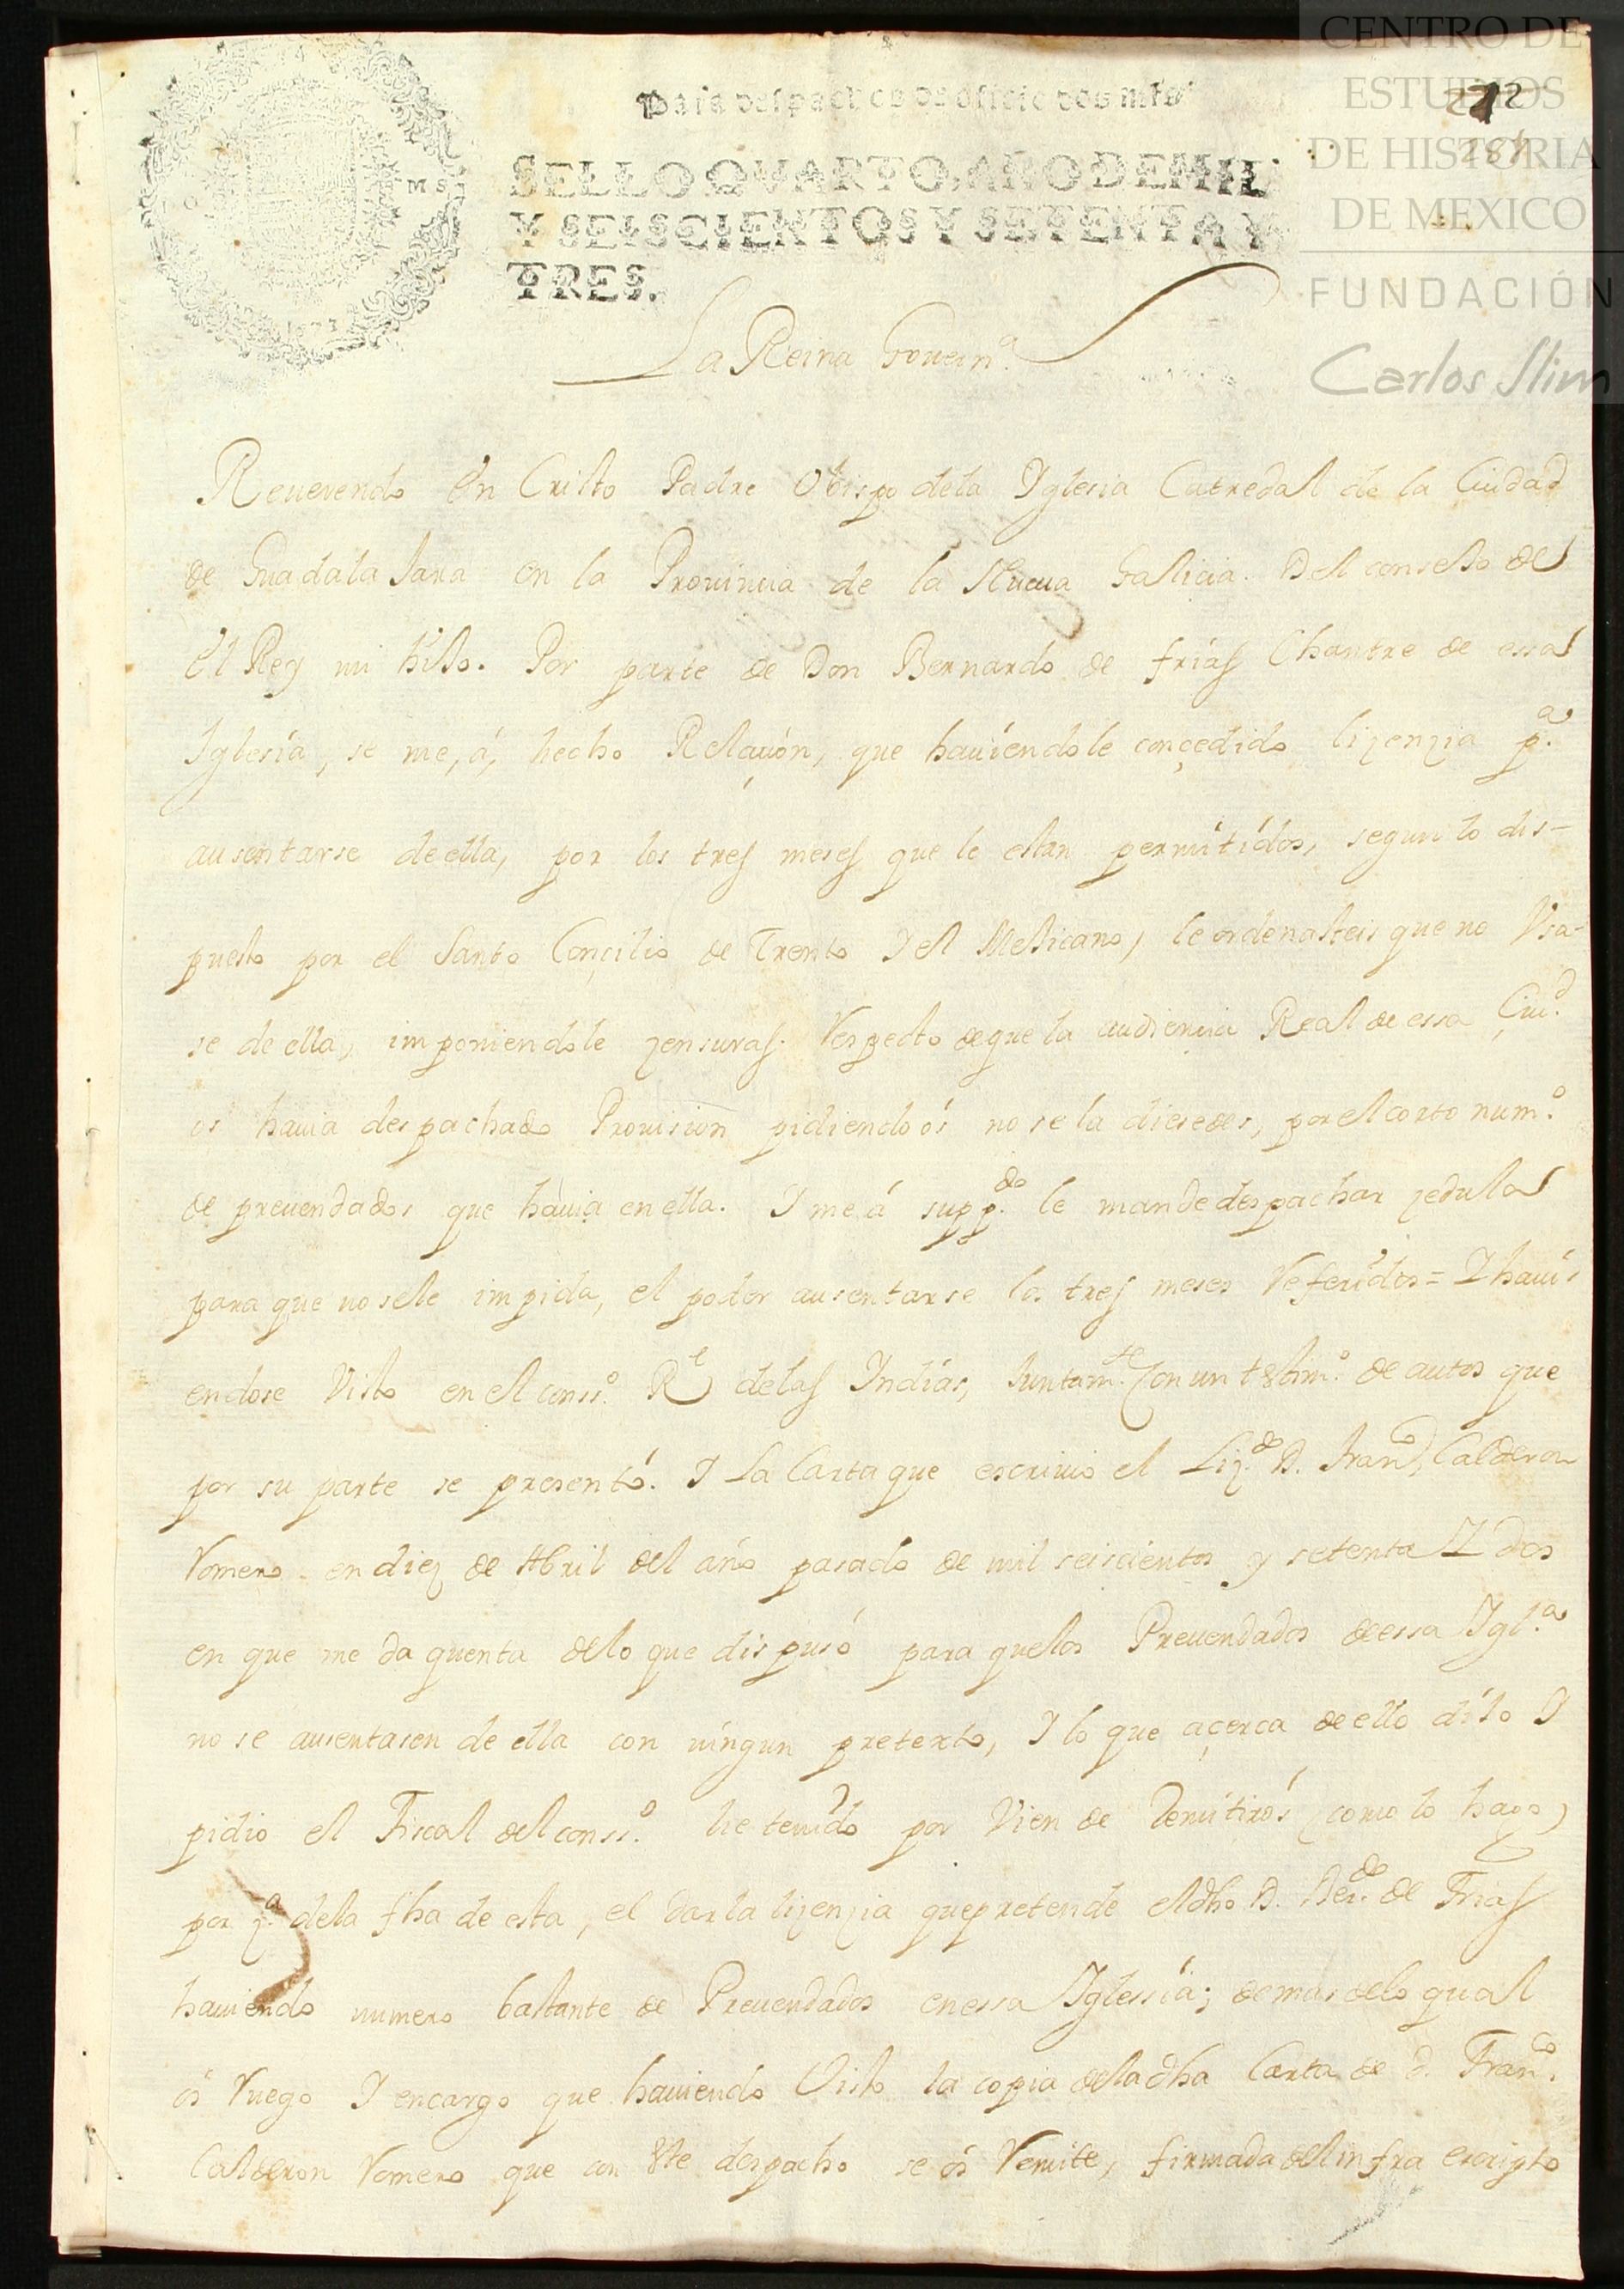 CENTRO DE
ESTUDIOS
DE HISTORIA
DE MEXICO
FUNDACIÓN
Carlos Slim
Para despachos de oficio dos mrs
SELLO QVARTO, AÑO DE MIL
Y SEISCIENTOS Y SETENTA Y
TRES.
La Reina Gouern.ª
Reuerendo En Cristo Padre Obispo dela Yglesia Catredal de la Ciudad
de Guadalaxara en la Prouincia de la Nueua Galicia. Del consejo de
el Rey mi hijo. Por parte de Don Bernardo de frias Chantre de essa
Iglesia, se me, á, hecho Relaçion, que hauiendole conçedido lizenzia p.ª
ausentarse de ella, por los tres meses que le estan permitidos, segun lo dis-
puesto por el Santo Conçilio de Trento Y el Mexicano, le ordenasteis que no Vsa-
se de ella, imponiendole zensuras. Respecto de que la audiençia Real de essa Çiu.d
os hauia despachado Prouision pidiendoós no se la diesedes, por el corto num.º
de preuendados que hauia en ella. Y me á supp.do le mande despachar zedula
para que no sele impida, el poder ausentarse los tres meses Referidos = Y haui-
endose Visto en el conss.º R.l delas Indias, Juntam.te con un testim.º de autos que
por su parte se presentó. Y La Carta que escriuio el Liz.do D. Fran.co Calderon
Romero en diez de Abril del año pasado de mil seiscientos y setenta Y dos
en que me da quenta delo que dispusó para quelos Preuendados de essa Igl.ª
no se ausentasen de ella con ningun pretexto, Y lo que açerca de ello dijo Y
pidio el Fiscal del conss.º he tenido por Vien de Remitirós (como lo hago)
por z.ª dela fha de esta, el dar la lizenzia que pretende el dho D. Ber.do de Frias
hauiendo numero bastante de Preuendados en essa Iglessia; demas delo qual
ós Ruego Y encargo que hauiendo Visto la copia dela dha Carta de D. Fran.co
Calderon Romero que con este despacho se ós Remite, firmada del infra escripto